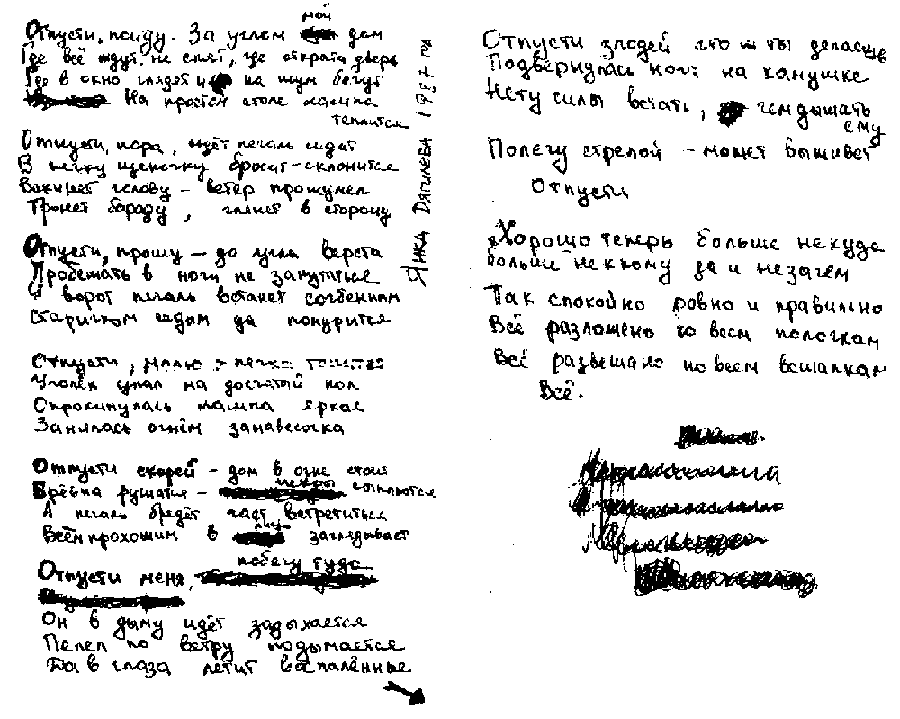 мой
Отпусти, пойду. За углом дом
Где всё ждут, не спят, где открыта дверь
Где в окно глядят и на шум бегут
На простом столе лампа
теплится
Отпусти, пора, идёт печаль седая
В печку щепочку бросит – склонится
Вскинет голову – ветер прошумел
Тронет бороду, глянет в сторону
Отпусти, прошу – до угла верста
Пробежать в ноги не запутаться
У ворот печаль встанет согбенным
Старичком седым да понурится
Отпусти, молю –
Уголёк упал на досчатый пол
Опрокинулась лампа яркая
Занялась огнём занавесочка
Отпусти скорей – дом в огне стоит
Брёвна рушатся – искры сыплются
А печаль бредёт нас встретиться
Всем прохожим в лицо заглядывает
побегу туда
Отпусти меня,
Он в дыму идёт задыхается
Пепел по ветру подымается
Да в глаза летит воспалённые
Янка Дягилева 1987 г.
Отпусти злодей что ж ты делаешь
Подвернулась ногa на камушке
Нету силы встать, чем дышать
ему
Полечу стрелой – может выживет
Отпусти
Хорошо теперь больше некуда
Больше некому да и незачем
Так спокойно ровно и правильно
Всё разложено по всем полочкам
Всё развешано по всем вешалкам
Всё.